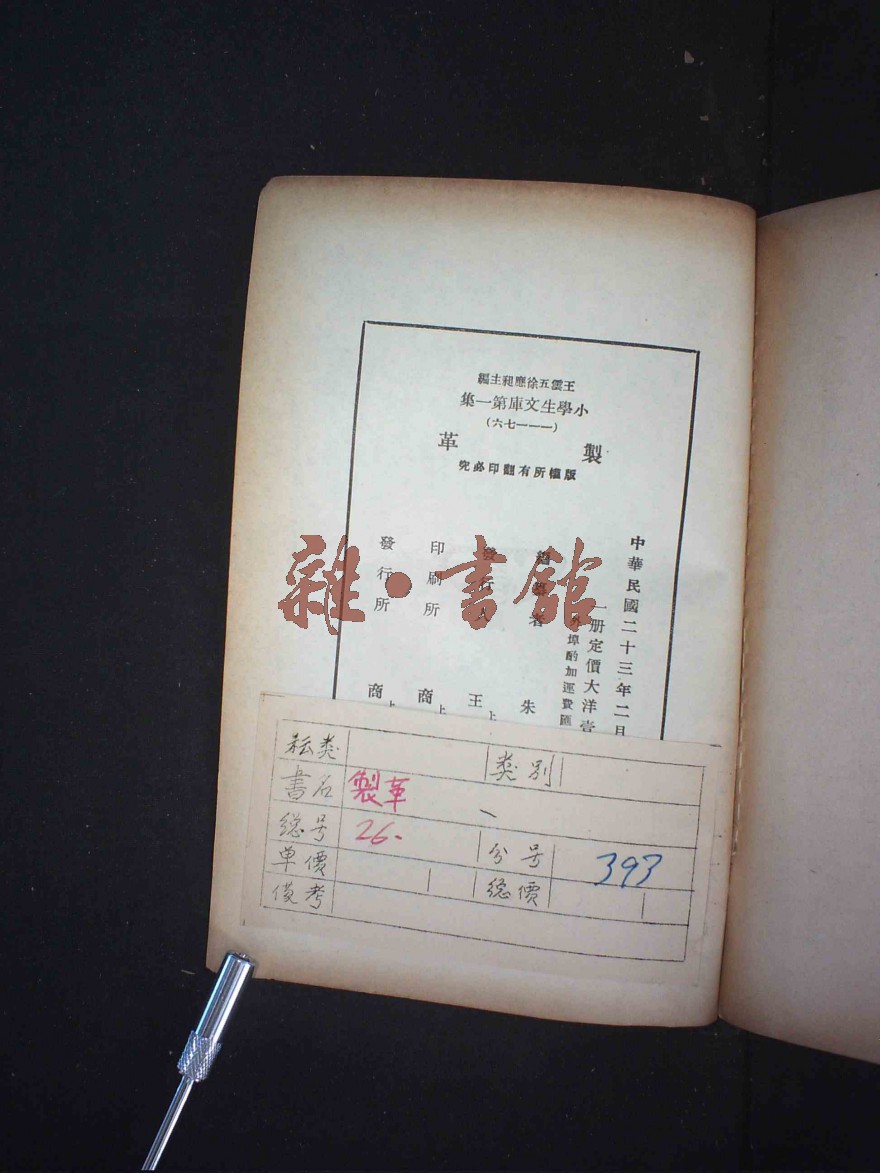 王雲五徐應昶主編
小學生文庫第一集
(一一一七六)
製革
版權所有翻印必究
中華民國二十三年二月
一册定價大洋壹
外埠酌加運費匯
編纂者 朱
發行人 王
上
印刷所 商
上
發行所 商
上
雜·書館
类 类别
書名 製革
總号 26. 分号 393
单價 總價
俻考